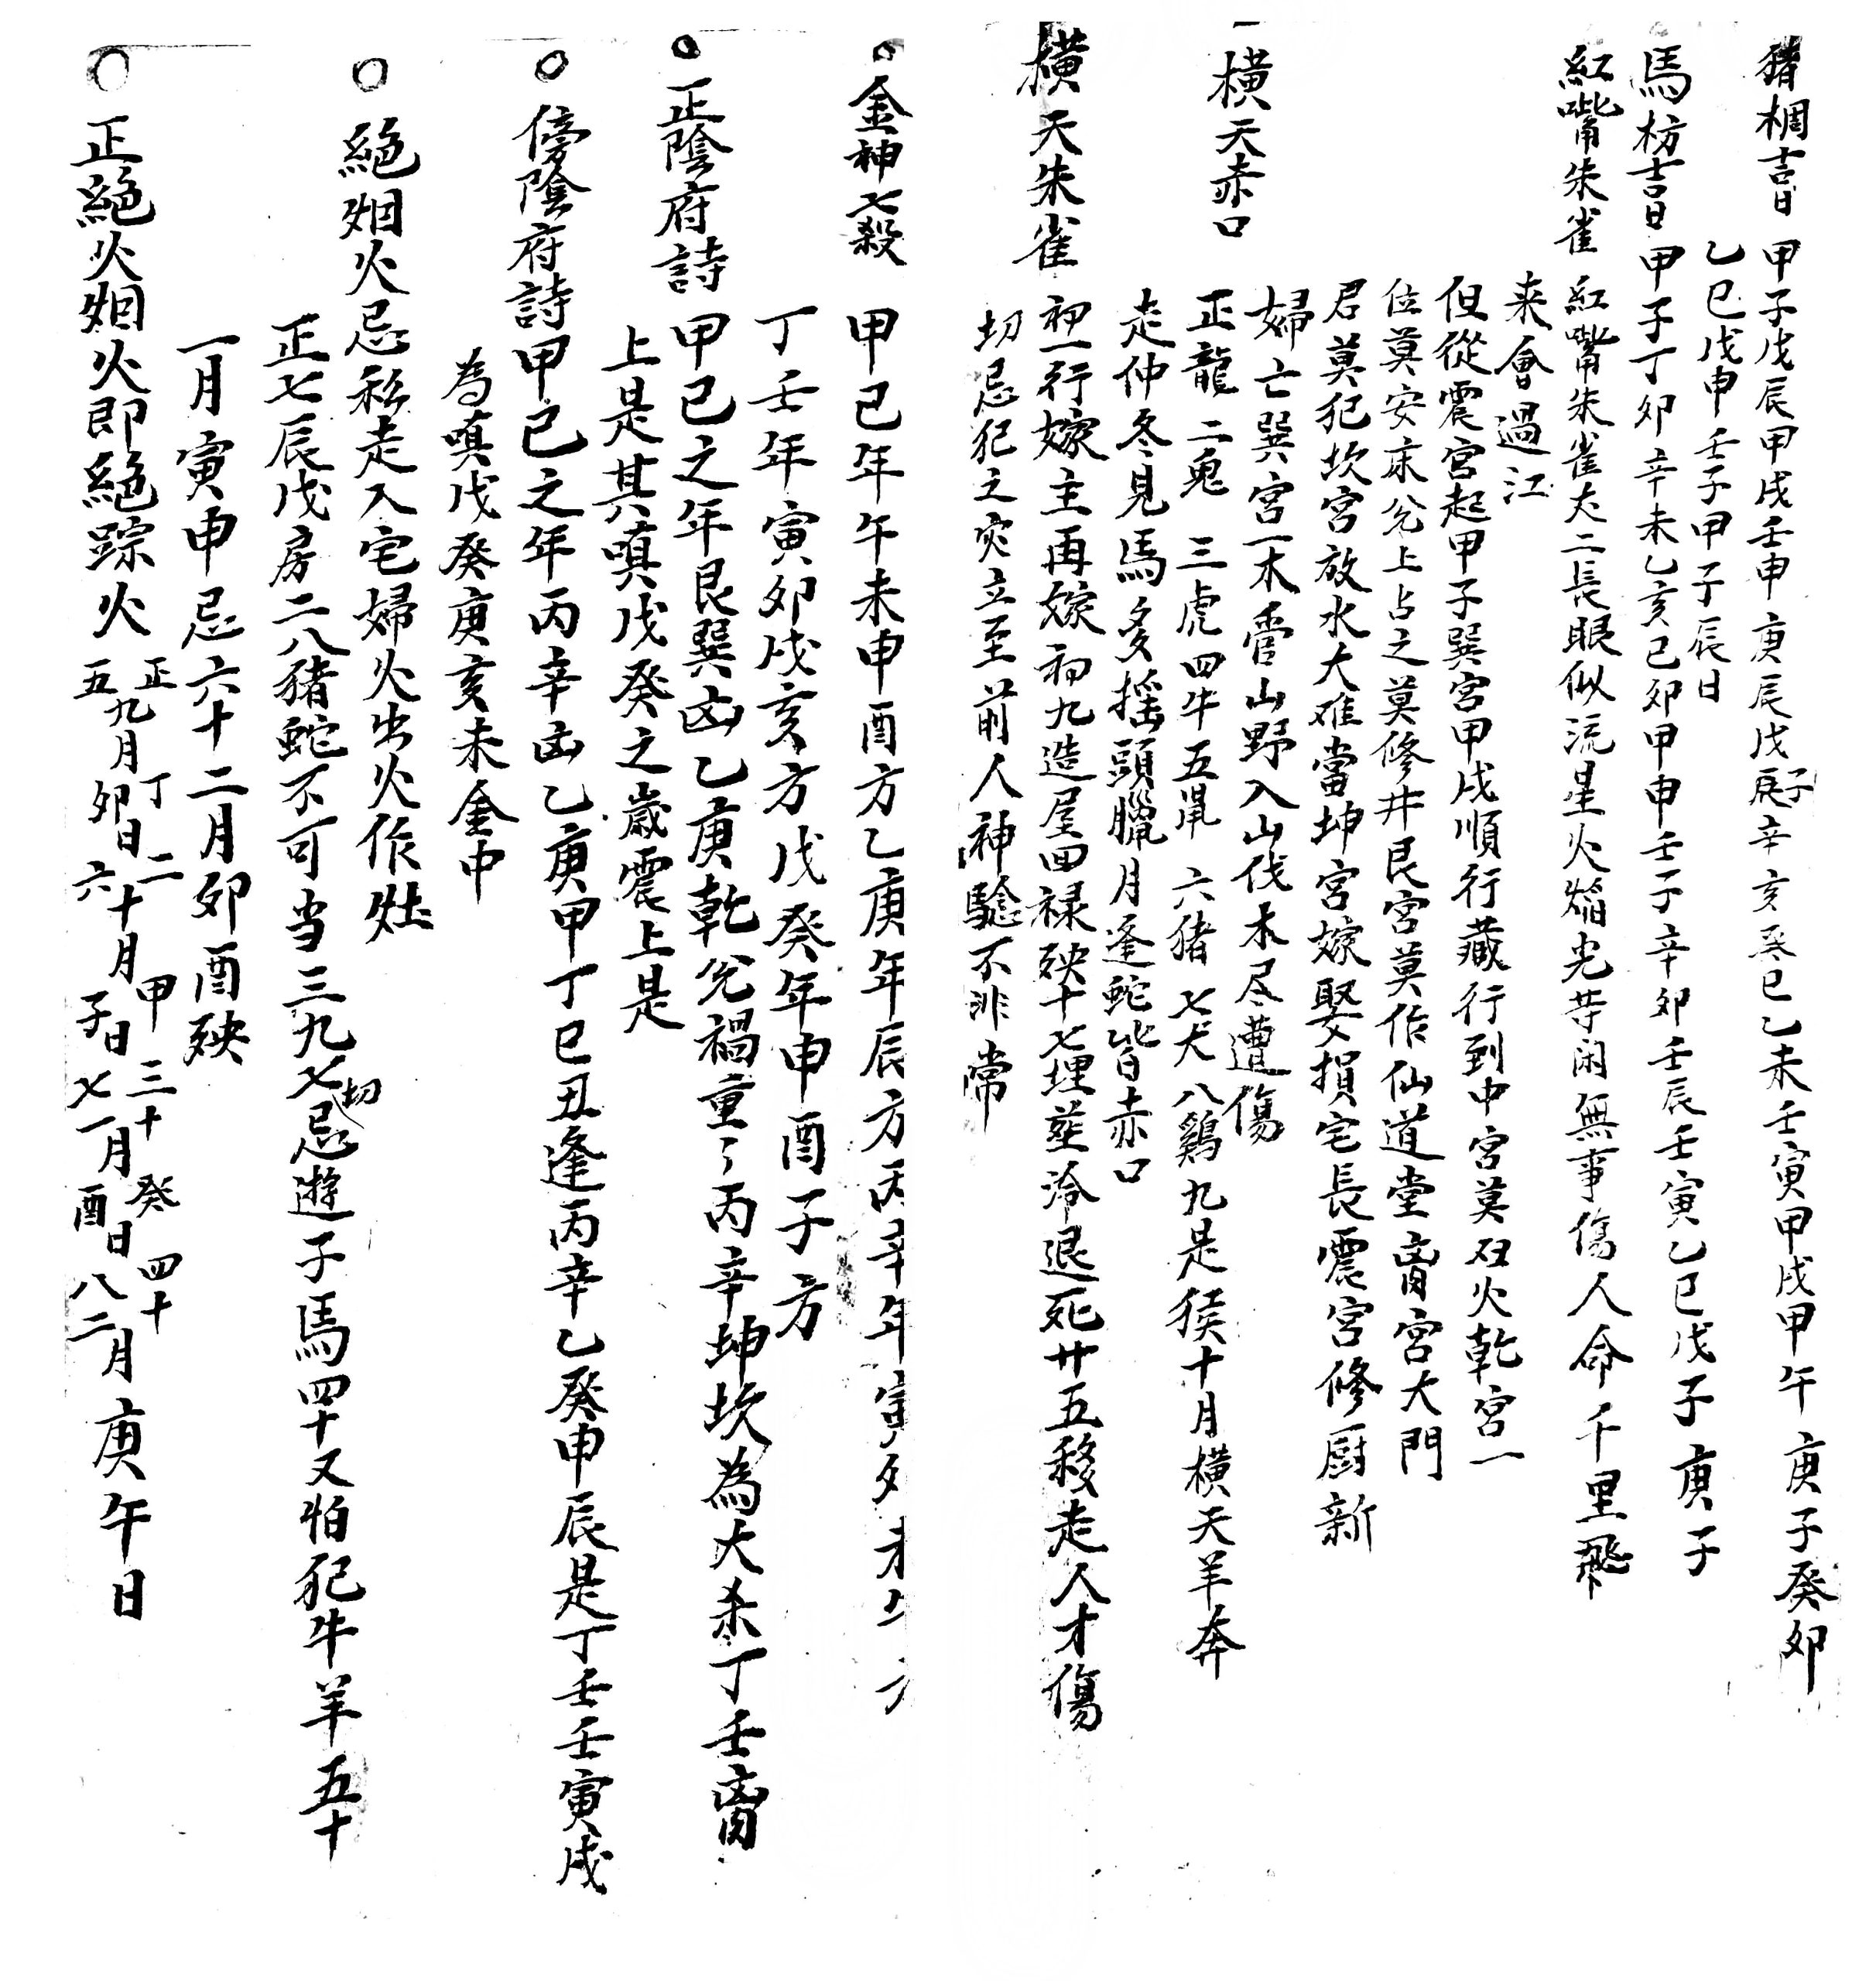 猪椆吉日 甲子戊辰甲戌壬申庚辰戊子庚辛亥癸巳乙未壬寅甲戌甲午庚子癸卯
乙巳戊申壬子甲子辰日
馬枋吉日 甲子丁卯辛未乙亥己卯甲申壬子辛卯壬辰壬寅乙巳戊子庚子
紅嘴朱雀 紅嘴朱雀丈二長眼似流星火焰光等闲無事傷人命千里飛
来會過江
但從震宮起甲子巽宮甲戌順行藏行到中宮莫犯火乾宮一
位莫安床兊上占之莫修井艮宮莫作仙道堂离宮大門
君莫犯坎宮放水大难當坤宮嫁娶損宅長震宮修厨新
婦亡巽宮一木管山野入山伐木尽遭傷
橫天赤口 正龍二鬼三虎四牛五鼠六猪七犬八鷄九是猴十月橫天羊奔
走仲冬見馬多摇頭臘月逢蛇皆赤口
橫天朱雀 初一行嫁主再嫁初九造屋回禄殃十七埋塟冷退死廿五移走人才傷
切忌犯之灾立至前人神驗不非常
金神七殺 甲己年午未申酉方乙庚年辰方丙辛年寅卯未午方
丁壬年寅卯戌亥方戊癸年申酉子方
正陰府詩 甲己之年艮巽凶乙庚乾兊禍重々丙辛坤坎為大杀丁壬离
上是其嗔戊癸之歲震上是
傍陰府詩 甲己之年丙辛凶乙庚甲丁巳丑逢丙辛乙癸申辰是丁壬壬寅戌
為嗔戊癸庚亥未金中
絕烟火忌移走入宅婦火出火作灶
正七辰戊房二八猪蛇不可当三九七切忌遊子馬四十又怕犯牛羊五十
一月寅申忌六十二月卯酉殃
正絕火烟火即絕踪火 正五九月丁卯日二六十月甲子日三七十一月癸酉日四八十二月庚午日